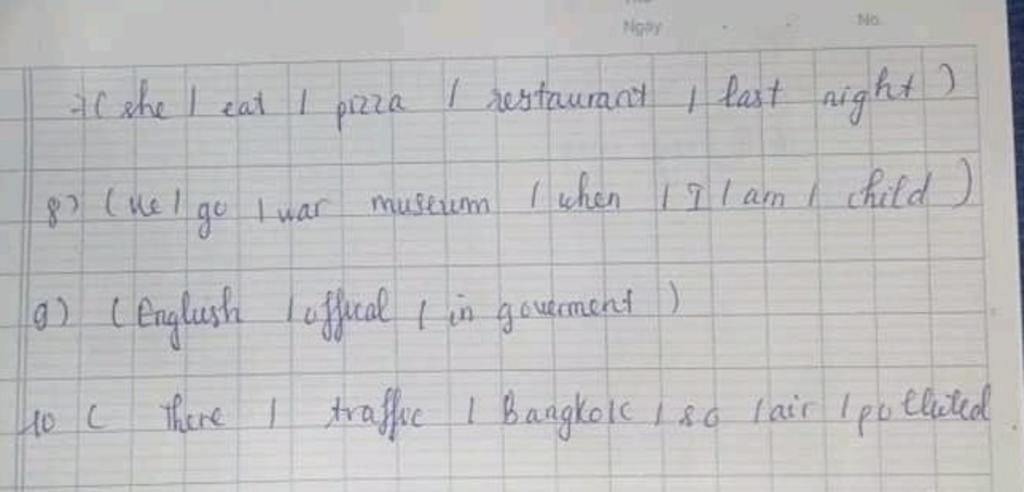 Ngày No.
7( she / eat / pizza / restaurant / last night )
8) ( we / go / war museum / when / I / am / child )
9) ( Englush / offical / in gouerment )
10 ( There / traffic / Bangkok / so / air / polluted